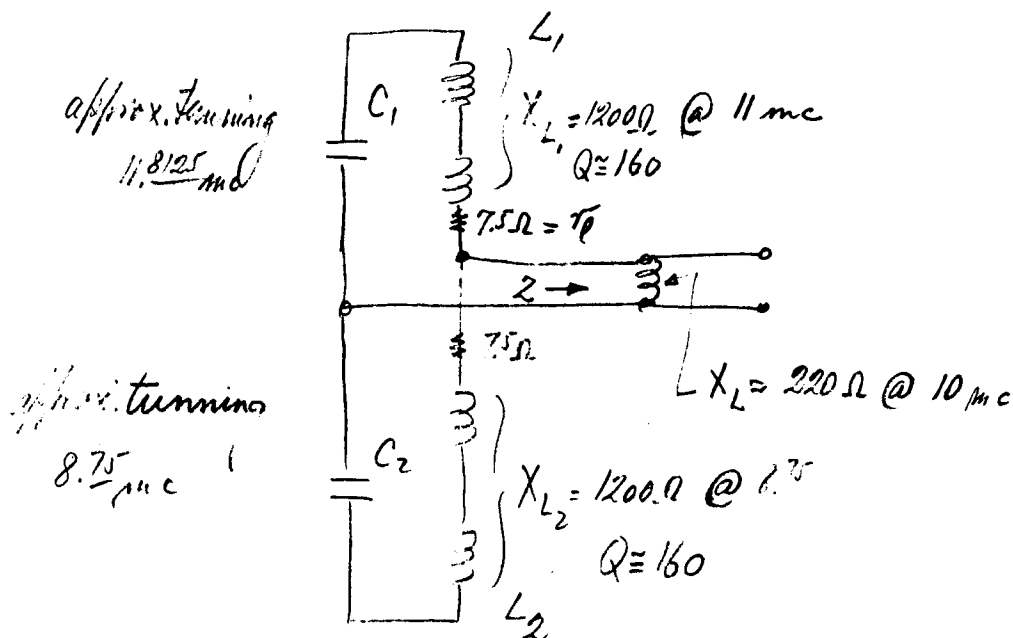 L₁
approx. tunning
11.8125 mc
C₁
X_L₁ = 1200Ω @ 11 mc
Q ≅ 160
7.5Ω =
Z →
7.5Ω
X_L = 220 Ω @ 10 mc
approx. tunning
8.75 mc
C₂
X_L₂ = 1200Ω @
Q ≅ 160
L₂